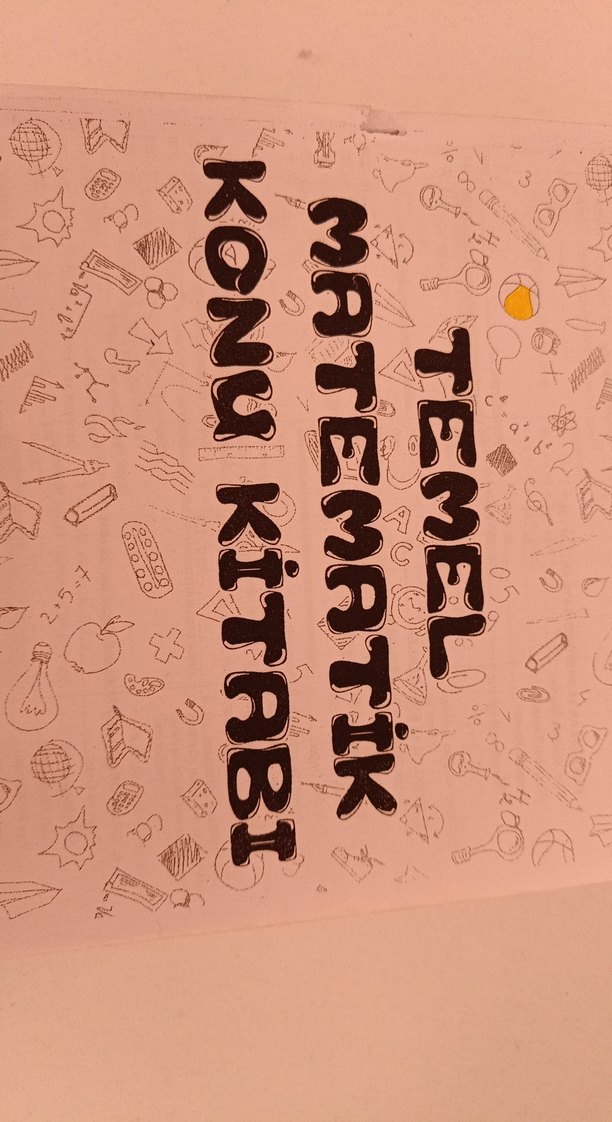 TEMEL
MATEMATİK
KONU KİTABI